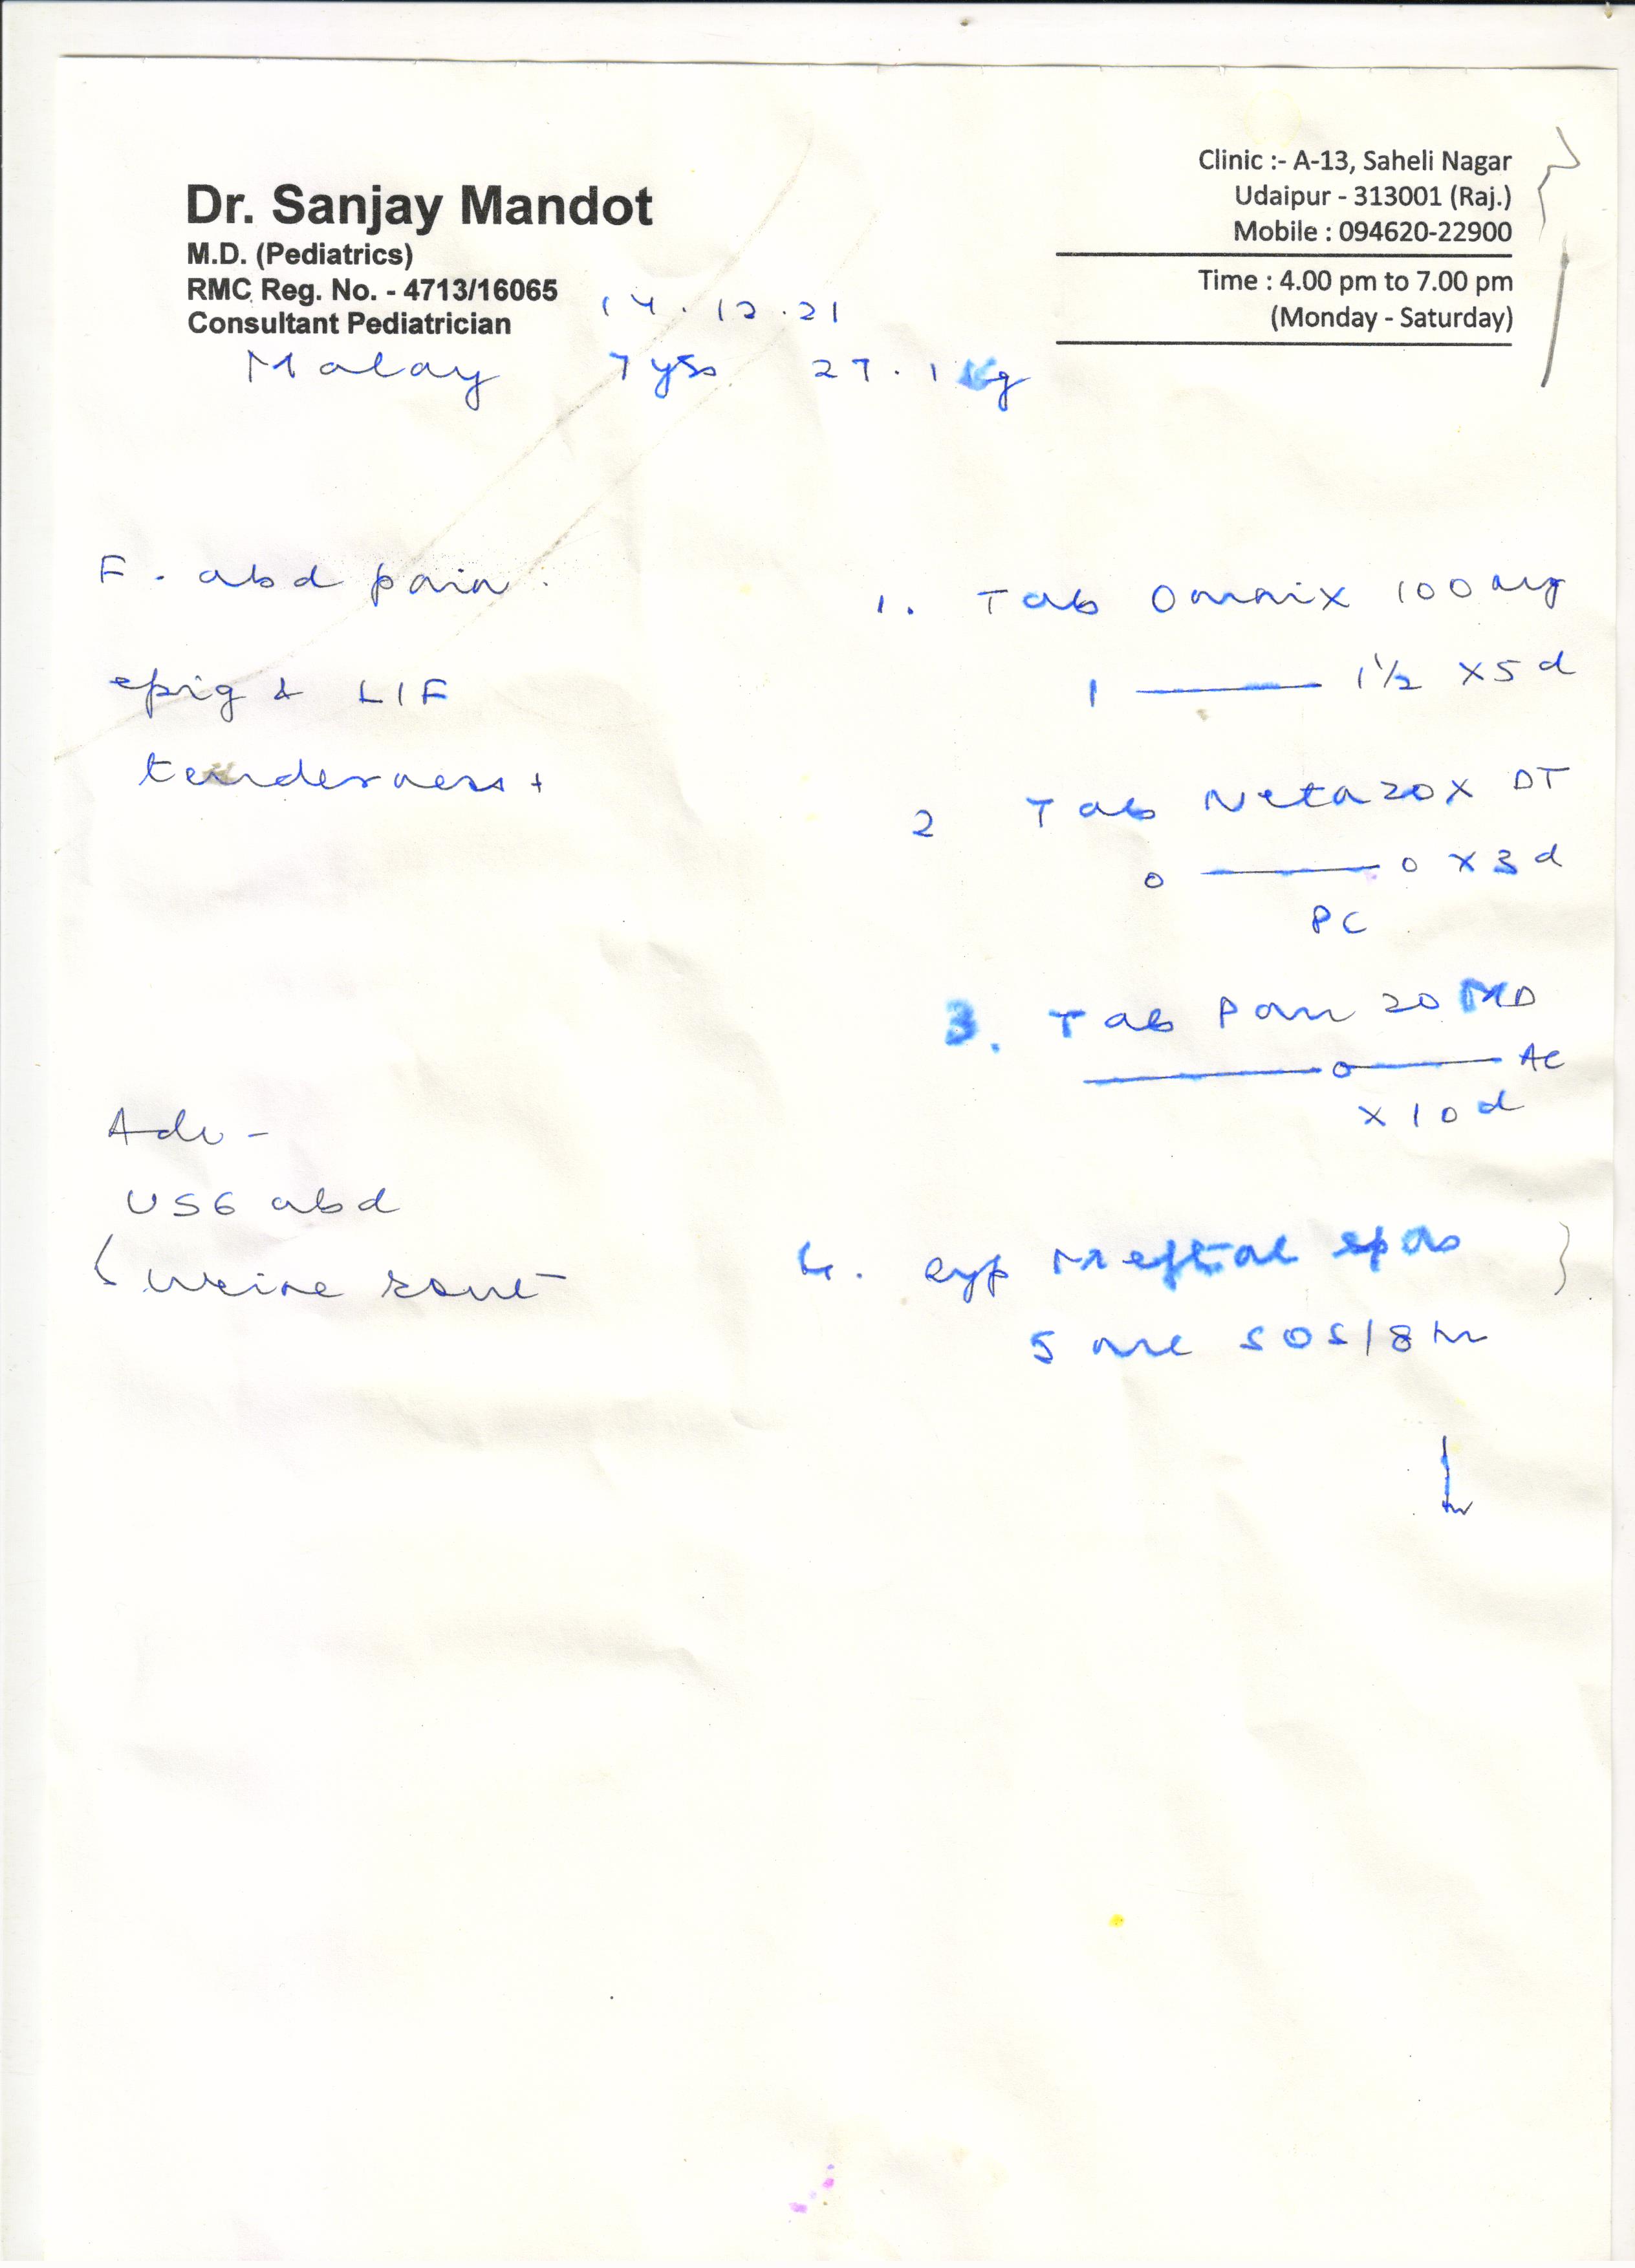 Dr. Sanjay Mandot
M.D. (Pediatrics)
RMC Reg. No. - 4713/16065
Consultant Pediatrician
Clinic :- A-13, Saheli Nagar
Udaipur - 313001 (Raj.)
Mobile : 094620-22900
Time : 4.00 pm to 7.00 pm
(Monday - Saturday)
14.12.21
Malay 7 yrs 27.1 kg
F. abd pain.
epig & LIF
tenderness +
Adv -
USG abd
urine rout
1. Tab Omnix 100 mg
1 — 1½ x 5 d
2 Tab Netazox DT
o — o x 3 d
PC
3. Tab Pan 20 MD
— o — AC
x 10 d
4. syp Meftal spas
5 ml SOS / 8 hr